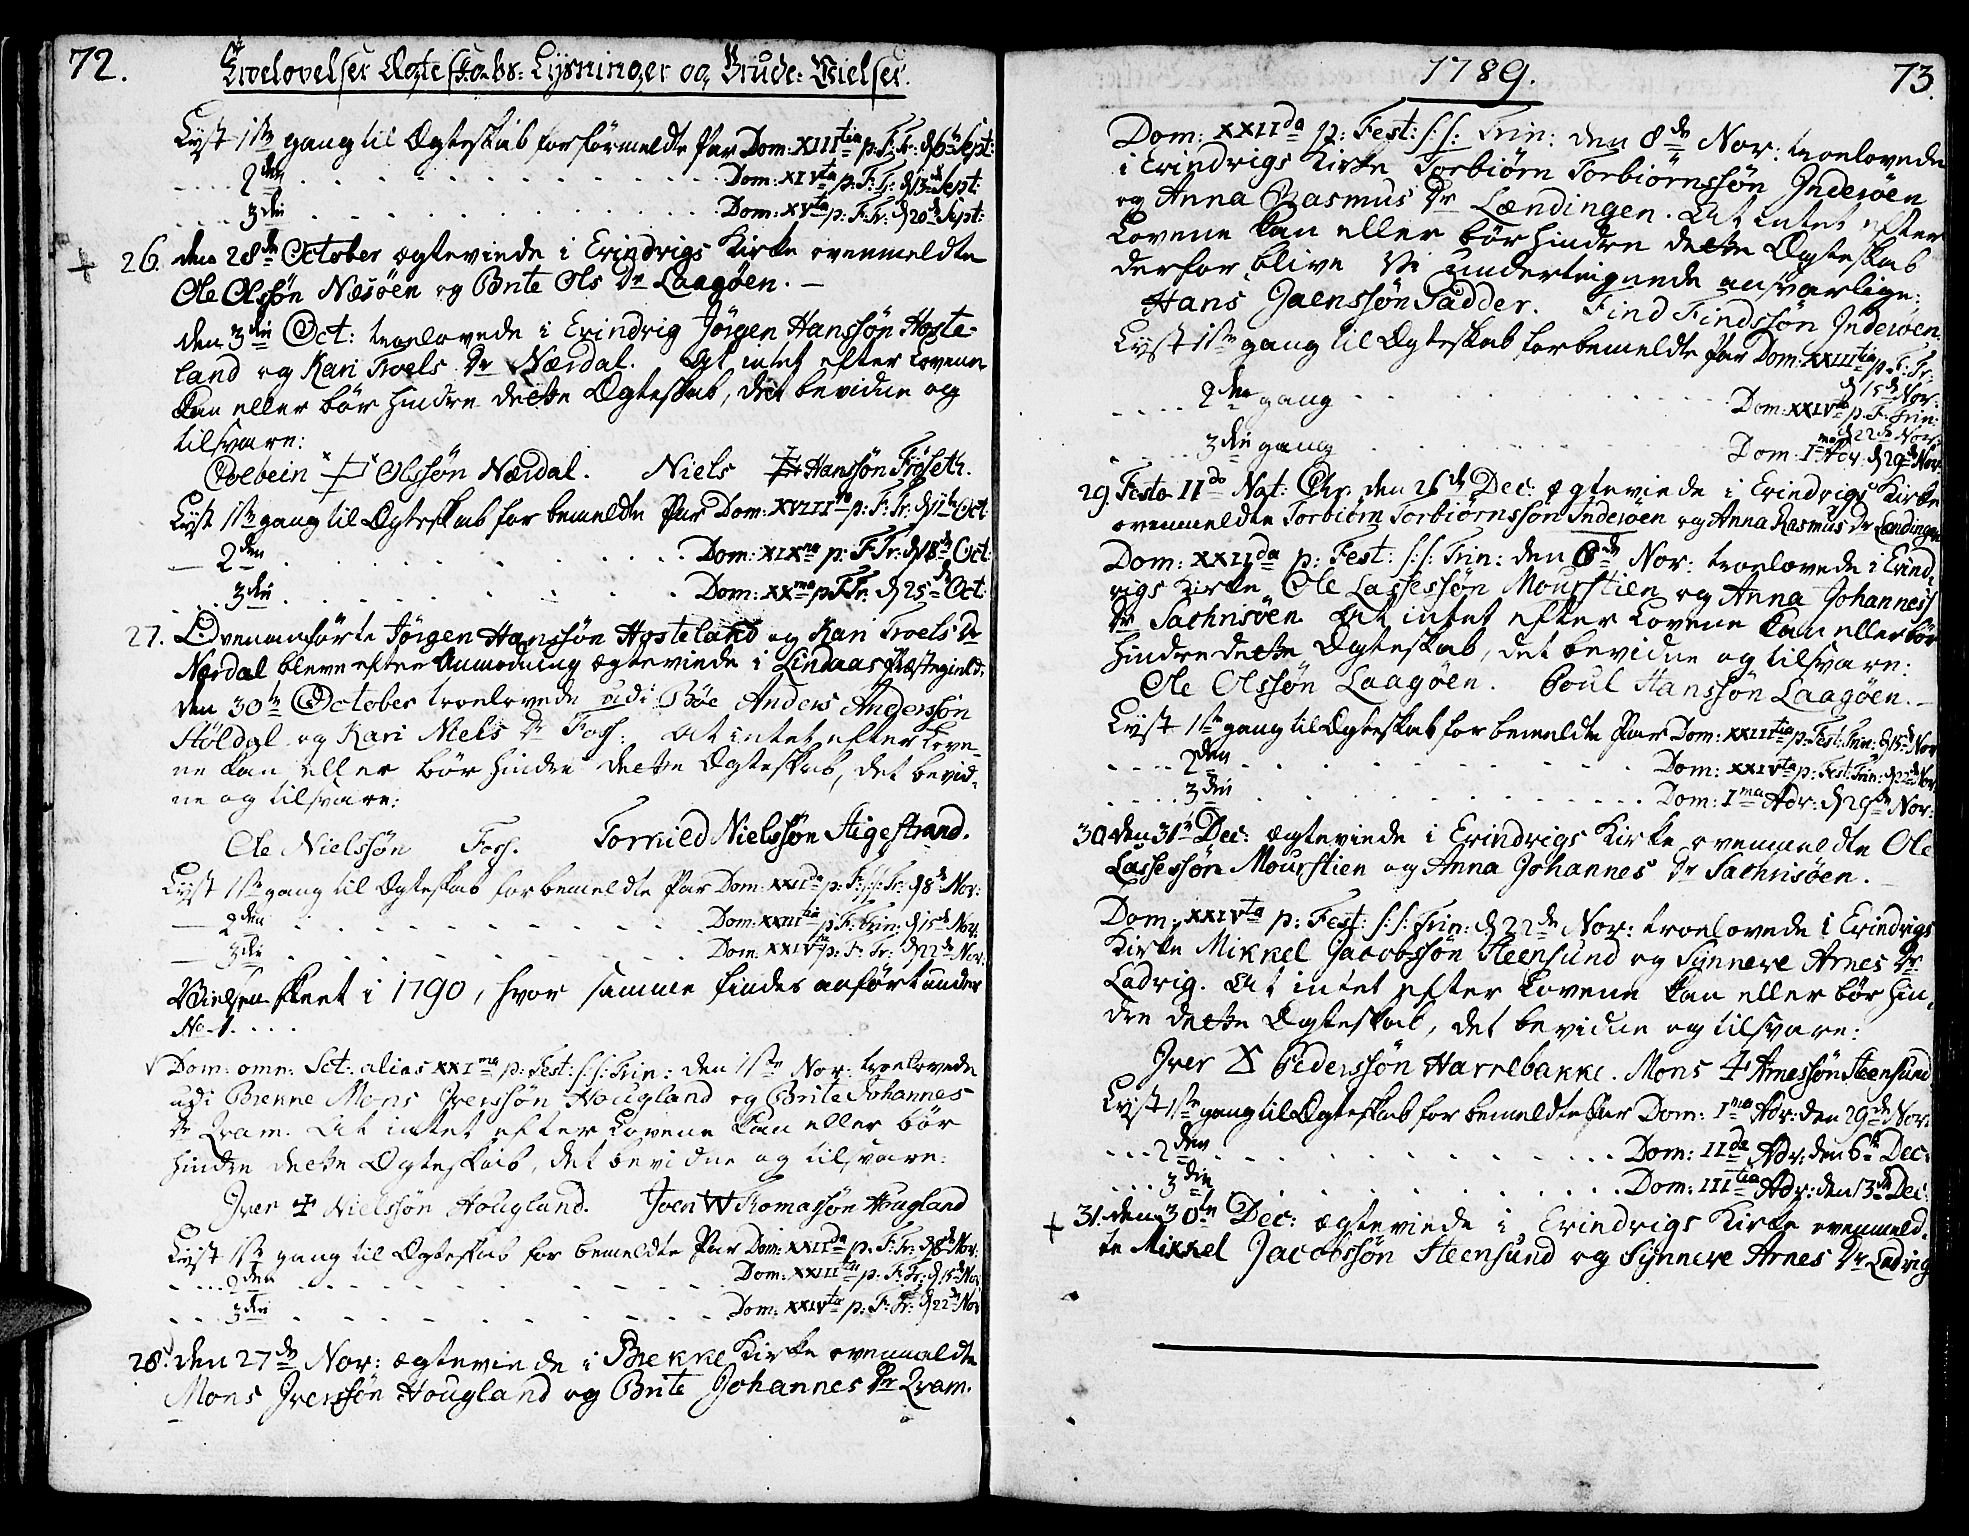 72.
Troelovelser Ægteskabs: Lysninger og Brude: Vielser.
Lyst 1ste gang til Ægteskab for førmeldte Par Dom: XIIItia p: F: Tr: d 6te Sept:
- - - - 2den - - - Dom: XIVta p: F: Tr: d 13de Sept:
- - - - 3die - - - Dom: XVta p: F: Tr: d 20de Sept:
+ 26. den 28de October ægteviede i Evindrigs Kirke ovenmeldte
Ole Olssön Næsöen og Brite Ols Dr Laagöen. —
den 3die Oct: troelovede i Evindrig Jörgen Hanssön Hoste-
land og Kari Troels Dr Nærdal. At intet efter Lovene
kan eller bör hindre dette Ægteskab, det bevidne og
tilsvare:
Colbein Olssön Nærdal. Niels Hanssön Fröseth.
Lyst 1ste gang til Ægteskab for bemeldte Par Dom: XVIIIva p: F: Tr: d 11te Oct:
— 2den - - - Dom: XIXna p: F: Tr: d 18de Oct:
- - - 3die - - - Dom: XXma p: F: Tr: d 25de Oct:
27. Ovenanförte Jörgen Hanssön Hosteland og Kari Troels Dr
Nærdal bleve efter Anmodning ægteviede i Lindaas Præstegield.
den 30te October troelovede udi Böe Anders Anderssön
Höldal og Kari Niels Dr Foss. At intet efter Love-
ne kan eller bör hindre dette Ægteskab, det bevid-
ne og tilsvare:
Ole Nielssön Foss. Tormed Nielssön Stigestrand.
Lyst 1ste gang til Ægteskab for bemeldte Par Dom: XXIIda p: F: s: s: Tr: d 8de Nov:
— 2den - - - Dom: XXIIItia p: F: Trin: d 15de Nov:
— 3die - - - Dom: XXIVta p: F: Tr: d 22de Nov:
Vielsen skeet i 1790, hvor samme findes anfört under
No 1. . . .
√ Dom: omn: Sct: alias XXIma p: Fest: s: s: Trin: den 1ste Nov: troelovede
udi Brekke Mons Iverssön Hougland og Brite Johannes
Dr Qvam. At intet efter Lovene kan eller bör
hindre dette Ægteskab, det bevidne og tilsvare:
Iver Nielssön Hougland. Joen W Thomassön Hougland
Lyst 1ste gang til Ægteskab for bemeldte Par Dom: XXIIda p: F: Tr: d 8de Nov:
- - - - 2den - - - Dom: XXIIItia p: F: Tr: d 15de Nov
- - - 3die - - - Dom: XXIVta p: F: Tr: d 22de Nov
28. den 27de Nov: ægteviede i Brekke Kirke ovenmeldte
Mons Iverssön Hougland og Brite Johannes Dr Qvam.
1789.
73.
Dom: XXIIda p: Fest: s: s: Trin: den 8de Nov: troelovede
i Evindrigs Kirke Torbiörn Torbiörnssön Inderöen
og Anna Rasmus Dr Lændingen. At intet efter
Lovene kan eller bör hindre dette Ægteskab
derfor blive Vi undertegnede ansvarlige:
Hans Joenssön Sadder. Find Findssön Inderöen.
Lyst 1ste gang til Ægteskab for bemeldte Par Dom: XXIIItia p: F: Tr:
d 15de Nov:
- - - - 2den gang - - - Dom: XXIVta p: F: Trin:
d 22de Nov:
- - - 3die gang - - - Dom: Ima Adv: d 29de Nov:
29. Festo IIdo Nat: Chr. den 26de Dec: ægteviede i Evindrigs Kirke
ovenmeldte Torbiörn Torbiörnssön Inderöen og Anna Rasmus Dr Lændingen
Dom: XXIIda p: Fest: s: s: Trin: den 8de Nov: troelovede i Evind-
rigs Kirke Ole Lassessön Mourstien og Anna Johannes
Dr Sachrisöen. At intet efter Lovene kan eller bör
hindre dette Ægteskab, det bevidne og tilsvare:
Ole Olssön Laagöen. Poul Hanssön Laagöen. —
Lyst 1ste gang til Ægteskab for bemeldte Par Dom: XXIIItia p: Fest: Trin: d 15de Nov
- - - - 2den - - - Dom: XXIVta p: Fest: Trin: d 22de Nov:
- - - - 3die - - - Dom: Ima Adv: d 29de Nov:
30. den 31te Dec: ægteviede i Evindrigs Kirke ovenmeldte Ole
Lassessön Mourstien og Anna Johannes Dr Sachrisöen. —
Dom: XXIVta p: Fest: s: s: Trin: d 22de Nov: troelovede i Evindrigs
Kirke Mikkel Jacobssön Steensund og Synneve Arnes Dr
Ladrig. At intet efter Lovene kan eller bör hin-
dre dette Ægteskab, det bevidne og tilsvare:
Iver Pederssön Harrebakke. Mons Arnessön Steensund
Lyst 1ste gang til Ægteskab for bemeldte Par Dom: Ima Adv: den 29de Nov:
- - - 2den - - - Dom: IIda Adv: den 6te Dec:
- - - 3die - - - Dom: IIItia Adv: den 13de Dec:
+ 31. den 30te Dec: ægteviede i Evindrigs Kirke ovenmeld-
te Mikkel Jacobssön Steensund og Synneve Arnes Dr Ladrig